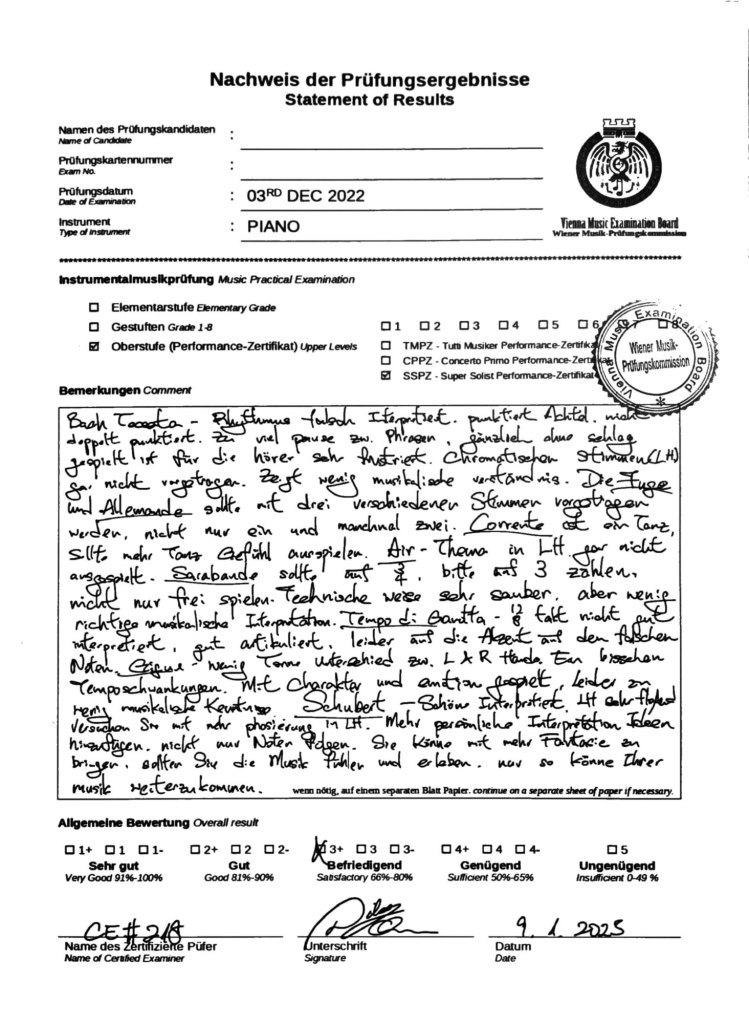 Nachweis der Prüfungsergebnisse
Statement of Results
Namen des Prüfungskandidaten :
Name of Candidate
Prüfungskartennummer :
Exam No.
Prüfungsdatum : 03RD DEC 2022
Date of Examination
Instrument : PIANO
Type of Instrument
Vienna Music Examination Board
Wiener Musik-Prüfungskommission
Instrumentalmusikprüfung Music Practical Examination
☐ Elementarstufe Elementary Grade
☐ Gestuften Grade 1-8 ☐ 1 ☐ 2 ☐ 3 ☐ 4 ☐ 5 ☐ 6 ☐ 7 ☐ 8
☑ Oberstufe (Performance-Zertifikat) Upper Levels ☐ TMPZ - Tutti Musiker Performance-Zertifikat
☐ CPPZ - Concerto Primo Performance-Zertifikat
☑ SSPZ - Super Solist Performance-Zertifikat
Vienna Music Examination Board
Wiener Musik-
Prüfungskommission
Bemerkungen Comment
Bach Toccata - Rhythmus falsch Interpretiert. punktiert Achtel. nicht
doppelt punktiert. Zu viel pause zw. Phrasen, gänzlich ohne schlag
gespielt ist für die hörer sehr frustriert. Chromatischen Stimmen (LH)
gar nicht vorgetragen. Zeigt wenig musikalische verständnis. Die Fuge
und Allemande sollte mit drei verschiedenen Stimmen vorgetragen
werden, nicht nur ein und manchmal zwei. Corrente ist ein Tanz,
sllte mehr Tanz Gefühl ausspielen. Air - Thema in LH gar nicht
ausgespielt. Sarabande sollte auf 3/4, bitte auf 3 zählen,
nicht nur frei spielen. Technische weise sehr sauber, aber wenig
richtige musikalische Interpretation. Tempo di Gavotta - 12/8 takt nicht gut
interpretiert, gut artikuliert, leider auf die Akzent auf den falschen
Noten. Gigue - wenig Tonne Unterschied zw. L & R Hände. Ein bisschen
Temposchwankungen. Mit Charakter und emotion gespielt, leider zu
wenig musikalische Kenntniss. Schubert - Schöne Interpretiert. LH sehr
Versuchen Sie mit mehr phrasierung in LH. Mehr persönliche Interpretation Ideen
hinzufügen. nicht nur Noten folgen. Sie könne mit mehr Fantasie zu
bringen, sollten Sie die Musik fühlen und erleben. nur so könne Ihrer
musik weiterzukommen. wenn nötig, auf einem separaten Blatt Papier. continue on a separate sheet of paper if necessary.
Allgemeine Bewertung Overall result
☐ 1+ ☐ 1 ☐ 1- ☐ 2+ ☐ 2 ☐ 2- ☒ 3+ ☐ 3 ☐ 3- ☐ 4+ ☐ 4 ☐ 4- ☐ 5
Sehr gut Gut Befriedigend Genügend Ungenügend
Very Good 91%-100% Good 81%-90% Satisfactory 66%-80% Sufficient 50%-65% Insufficient 0-49 %
CE#218 9. 1. 2023
Name des Zertifizierte Püfer Unterschrift Datum
Name of Certified Examiner Signature Date